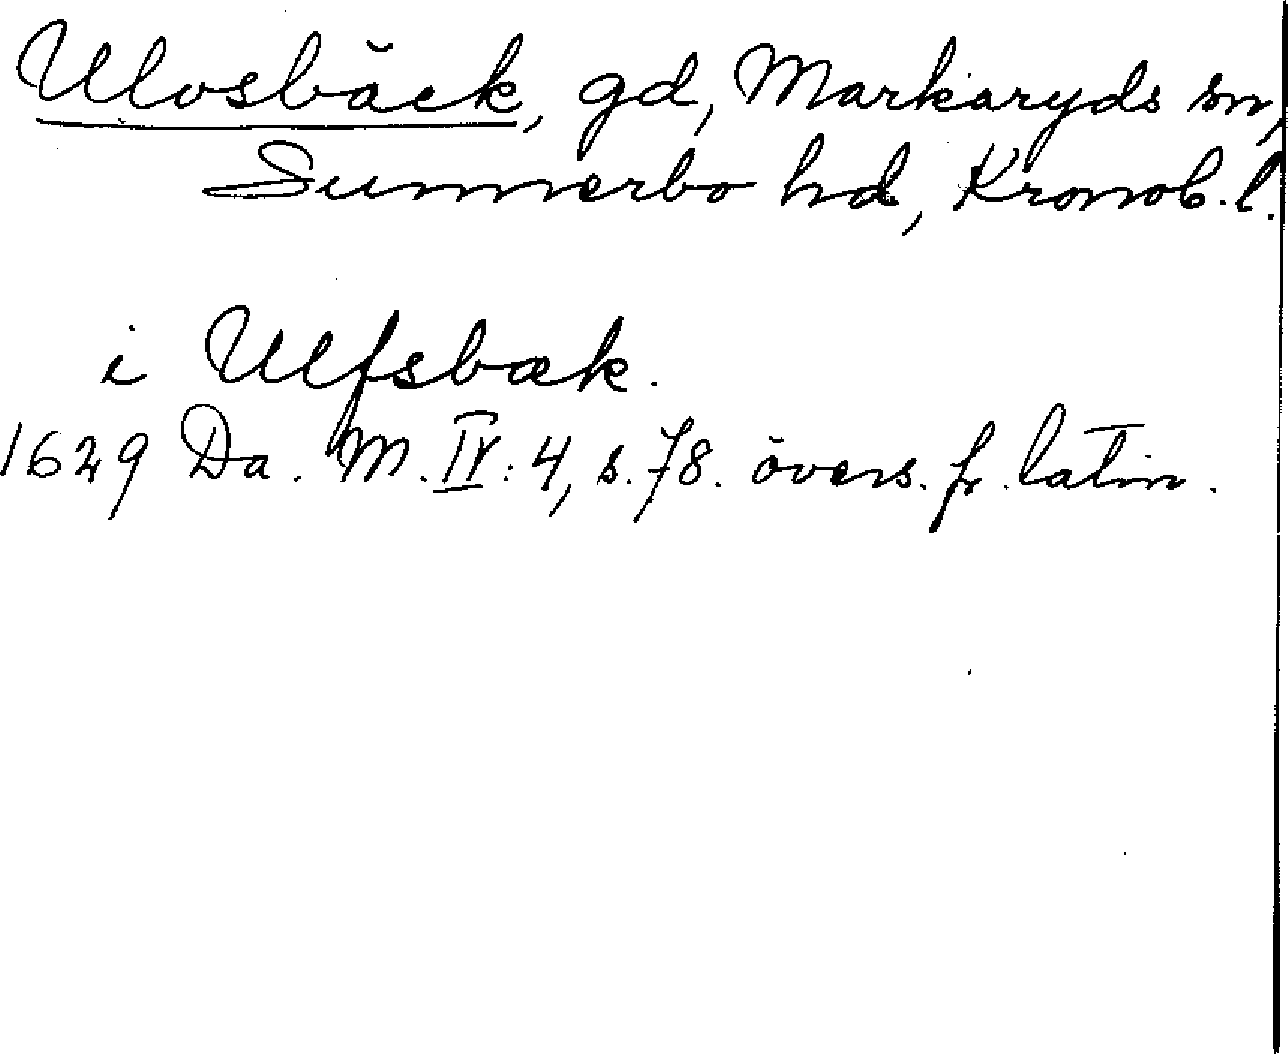 Ulvsbäck, gd, Markaryds sn,
Sunnerbo hd, Kronob. l.
i Ulfsbæk.
1629 Da. M. IV: 4, s. 78. övers. fr. latin.